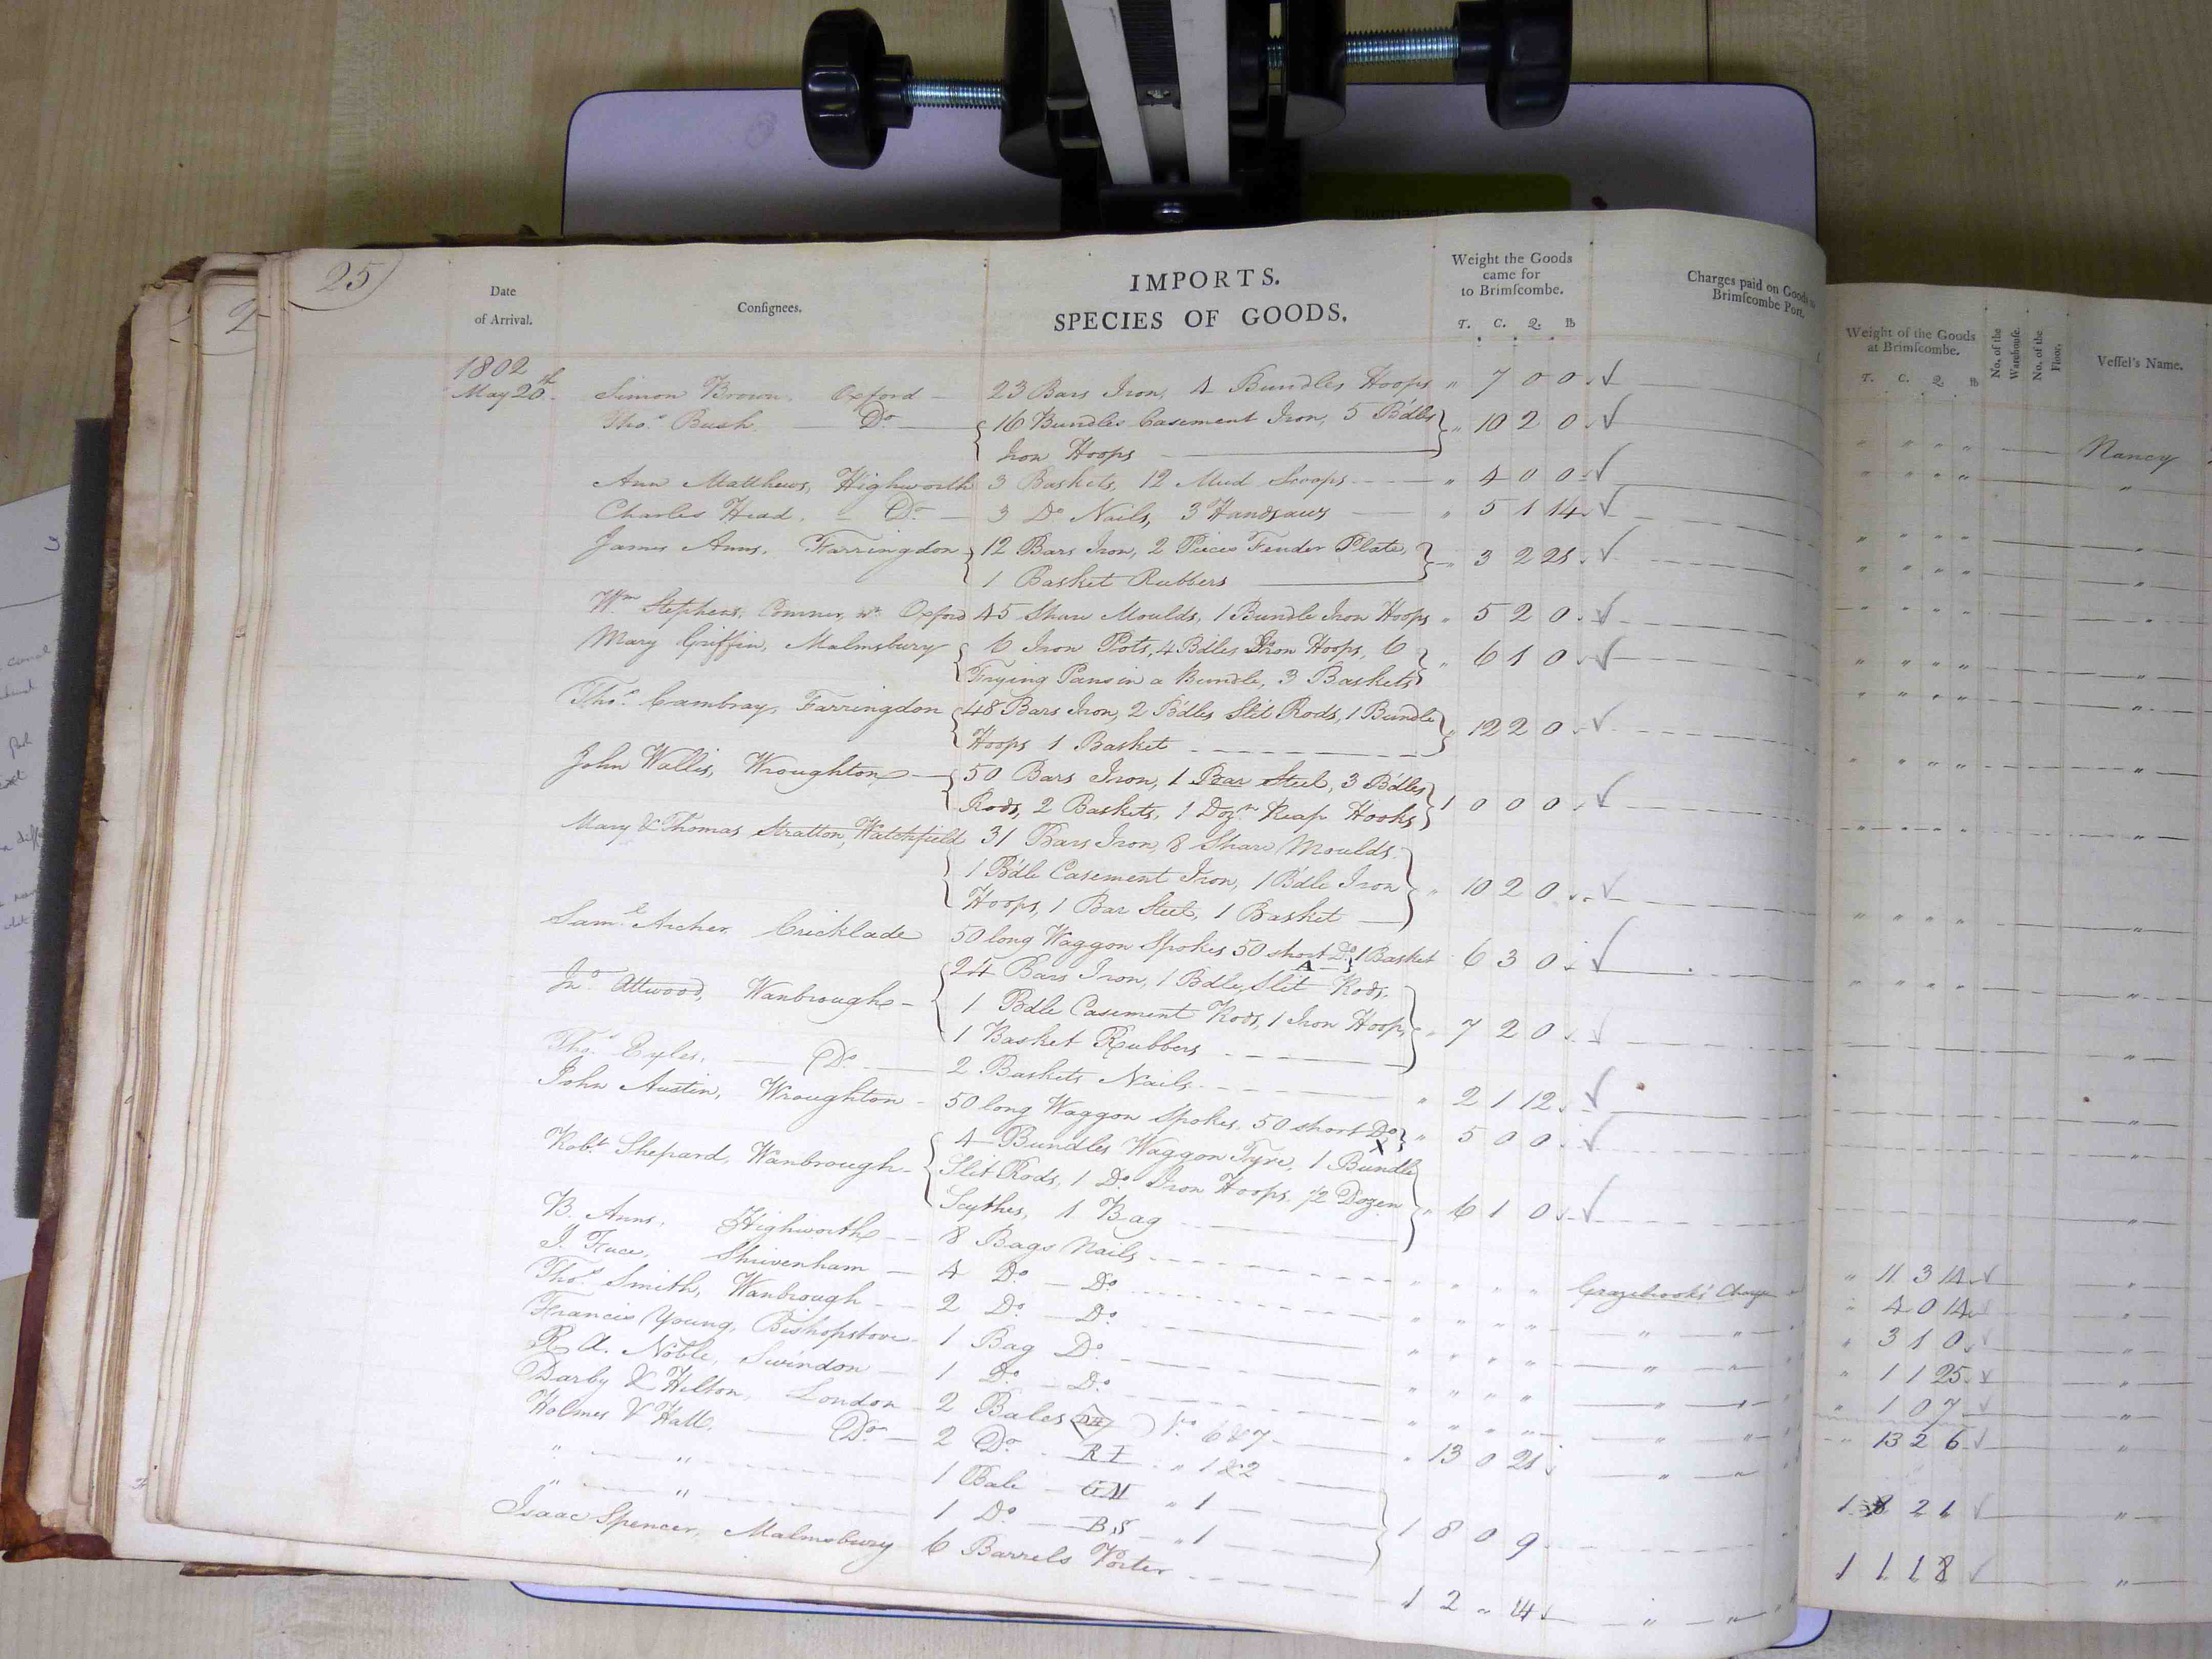 25
Date
of Arrival.
Consignees.
IMPORTS.
SPECIES OF GOODS.
Weight the Goods
came for
to Brimscombe.
T. C. Q. lb
Charges paid on Goods
Brimscombe Port.
Weight of the Goods
at Brimscombe.
T. C. Q. lb
No. of the
Warehouse.
No. of the
Floor.
Vessel's Name.
1802
May 20th. Simon Brown, Oxford 23 Bars Iron, 4 Bundles Hoops " 7 0 0 " " " " Nancy
Thos. Bush Do 16 Bundles Casement Iron, 5 Bdles " 10 2 0 " " " " "
Iron Hoops
Ann Matthews, Highworth 3 Baskets, 12 Mud Scoops " 4 0 0 " " " " "
Charles Head, Do 3 Do Nails, 3 Handsaws " 5 1 14 " " " " "
James Anns, Farringdon 12 Bars Iron, 2 Pieces Fender Plate, " 3 2 21 " " " " "
1 Basket Rubbers
Wm Stephens, Comner, nr Oxford 45 Share Moulds, 1 Bundle Iron Hoops " 5 2 0 " " " " "
Mary Griffin, Malmsbury 6 Iron Pots, 4 Bdles Iron Hoops, 6 " 6 1 0 " " " " "
Frying Pans in a Bundle, 3 Baskets
Thos. Cambray, Farringdon 48 Bars Iron, 2 Bdles Slit Rods, 1 Bundle " 12 2 0 " " " " "
Hoops 1 Basket
John Wallis, Wroughton 50 Bars Iron, 1 Bar Steel, 3 Bdles 1 0 0 0 " " " " "
Rods, 2 Baskets, 1 Dozn Reap Hooks
Mary & Thomas Stratton, Watchfield 31 Bars Iron, 8 Share Moulds
1 Bdle Casement Iron, 1 Bdle Iron " 10 2 0 " " " " "
Hoops, 1 Bar Steel, 1 Basket
Saml Archer Cricklade 50 long Waggon Spokes 50 short Do 1 Basket 6 3 0 " " " " "
Jno Attwood, Wanbrough 24 Bars Iron, 1 Bdle Slit Rods,
1 Bdle Casement Rods, 1 Iron Hoop, " 7 2 0 "
1 Basket Rubbers
Thos. Eyles, Do 2 Baskets Nails " 2 1 12 "
John Austin, Wroughton 50 long Waggon Spokes, 50 short Do " 5 0 0 "
Robt Shepard, Wanbrough 4 Bundles Waggon Tyre, 1 Bundle
Slit Rods, 1 Do Iron Hoops, 1/2 Dozen " 6 1 0 "
Scythes, 1 Bag
B. Anns, Highworth 8 Bags Nails " " " " Grazebrooks Charge " 11 3 14 "
J. Fuce, Shrivenham 4 Do Do " " " " " " " 4 0 14 "
Thos. Smith, Wanbrough 2 Do Do " " " " " " " 3 1 0 "
Francis Young, Bishopstone 1 Bag Do " " " " " " " 1 1 25 "
R. A. Noble, Swindon 1 Do Do " " " " " " " 1 0 7 "
Darby & Hilton, London 2 Bales DH No 6 & 7 " 13 0 21 " " " 13 2 6 "
Holmes & Hall, Do 2 Do R I " 1 & 2
" " 1 Bale GM " 1 1 8 0 9 1 8 2 1 "
" " 1 Do BS " 1
Isaac Spencer, Malmsbury 6 Barrels Porter 1 2 " 14 " " 1 1 1 8 "